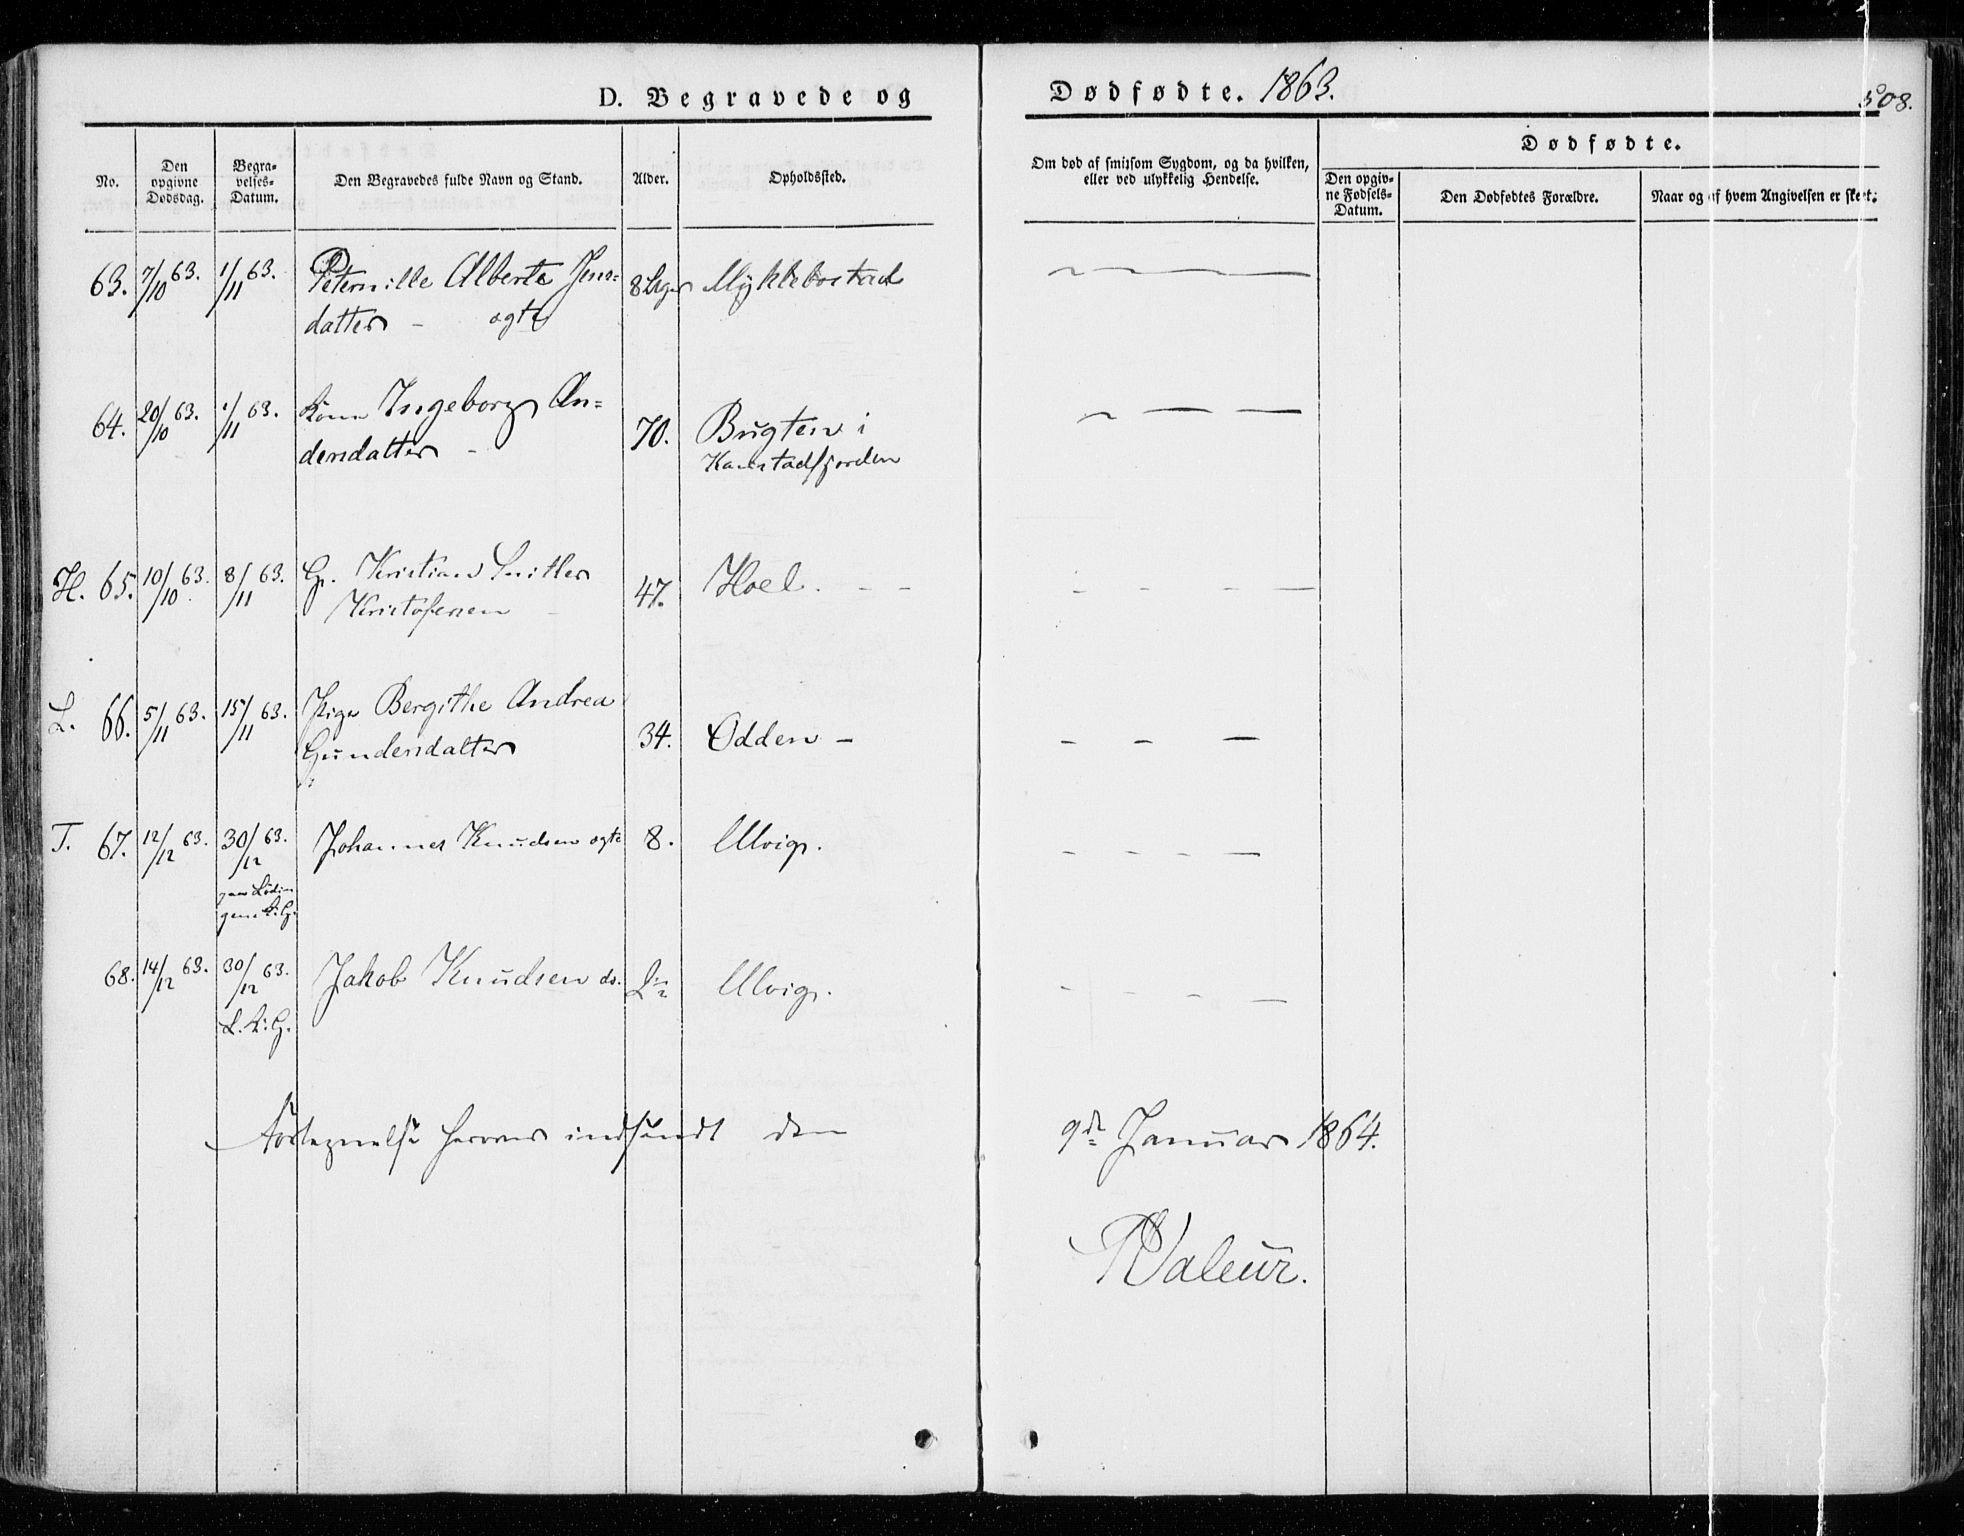 D. Begravede og Dødfødte. 1863.
508.
No.
Den opgivne Dødsdag.
Begravelses-Datum.
Den Begravedes fulde Navn og Stand.
Alder.
Opholdssted.
Om død af smitsom Sygdom, og da hvilken,
eller ved ulykkelig Hendelse.
Dødfødte.
Den opgivne Fødsels-Datum.
Den Dødfødtes Forældre.
Naar og af hvem Angivelsen er skeet.
63. 7/10 63. 1/11 63. Peternille Alberta Jens= 8 Uger Myklebostad
datter – ægte
64. 20/10 63. 1/11 63. Kone Ingeborg An= 70. Bugten i
dersdatter – Kanstadfjorden
H. 65. 10/10 63. 8/11 63. G. Kristian Sritler 47. Hoel. – –
Kristofersen –
L. 66. 5/11 63. 15/11 63. Pige Bergithe Andrea 34. Odden –
Gundersdatter
T. 67. 12/12 63. 30/12 63. Johannes Knudsen ægte 8. Ulvig.
paa Lødin
gens K. G.
68. 14/12 63. 30/12 63. Jakob Knudsen do. Ulvig.
L. K. G.
Fortegnelse herover indsendt den 9de Januar 1864.
RValeur.